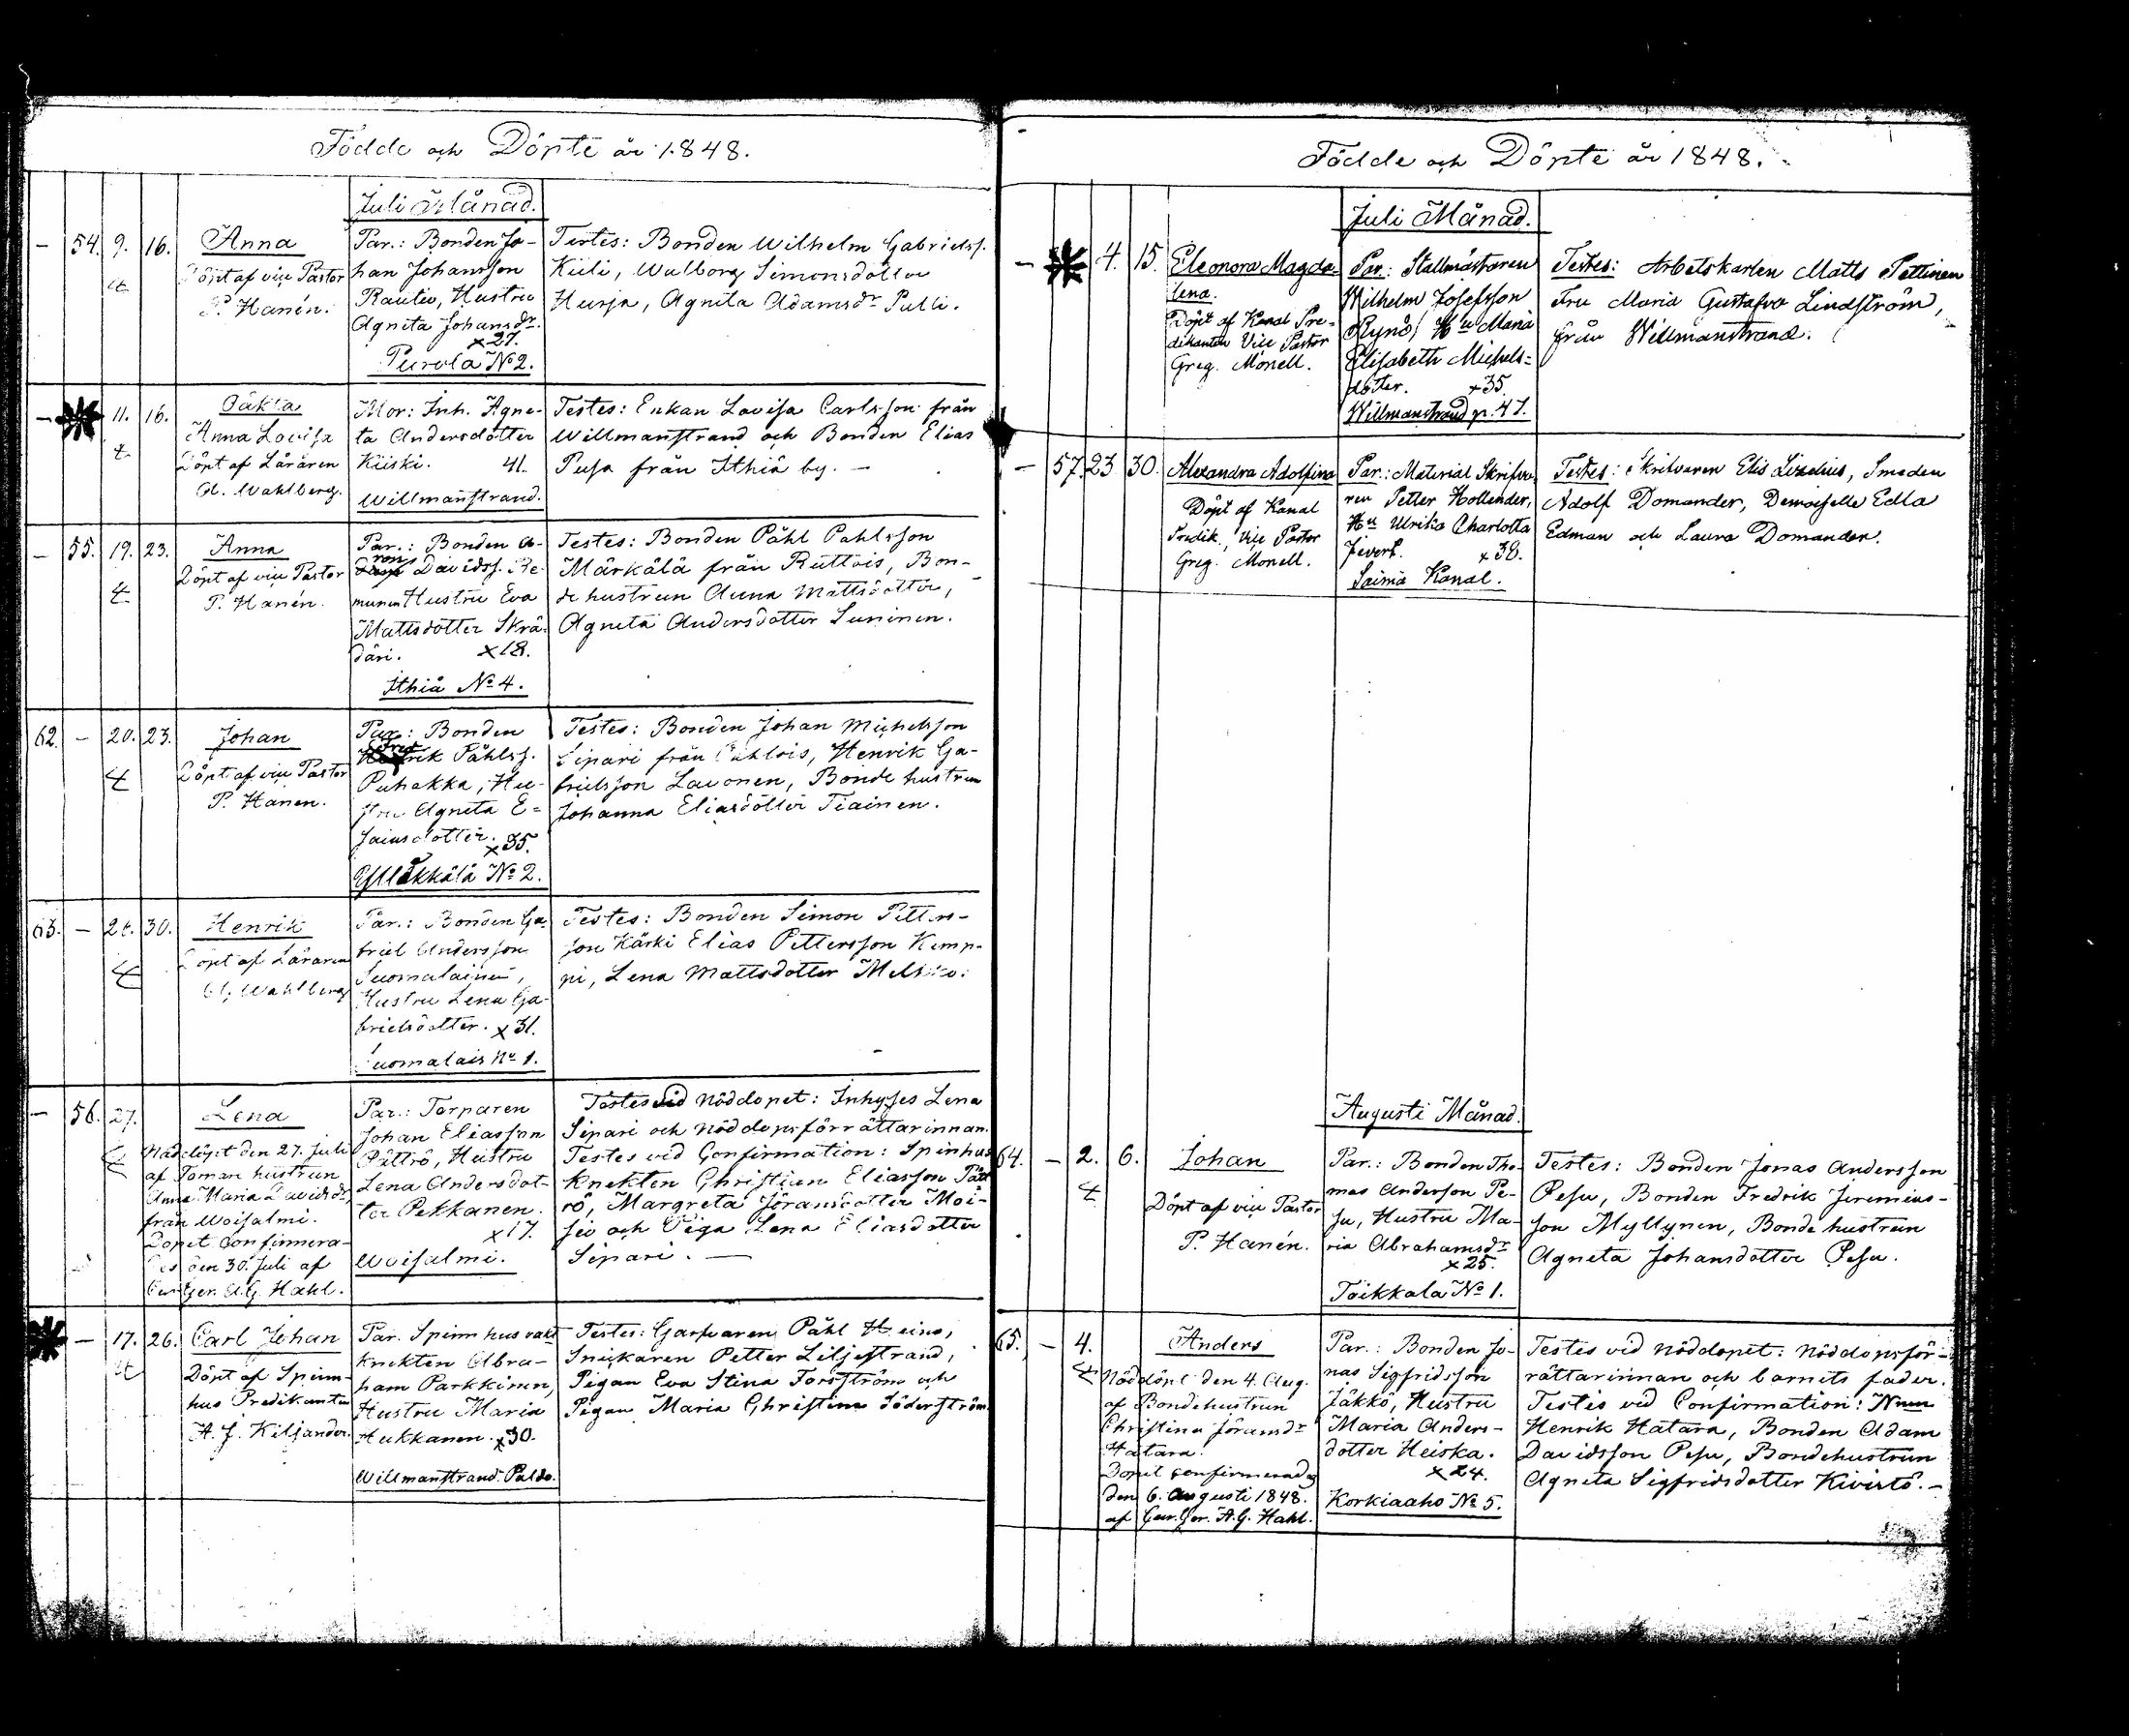 Födde och Döpte år 1848.
Juli Månad.
— 54. 9. 16. Anna
Döpt af vice Pastor
P. Hanén.
Par.: Bonden Jo-
han Johansson
Rautio, Hustru
Agneta Johansdr.
x27.
Purola No 2.
Testes: Bonden Wilhelm Gabrielss.
Kiili, Walborg Simonsdotter
Husja, Agneta Adamsdr Pulli.
— 11. 16. Oäkta
Anna Lovisa
Döpt af Läraren
A. Wahlberg.
Mor: Inh. Agne-
ta Andersdotter
Kiiski. 41.
Willmanstrand.
Testes: Enkan Lovisa Carlsson från
Willmanstrand och Bonden Elias
Pusa från Ithiä by. —
— 55. 19. 23. Anna
Döpt af vice Pastor
P. Hanén.
Par.: Bonden A-
ron Davidss. Re-
munen Hustru Eva
Mattsdotter Skrä-
däri. x18.
Ithiä No 4.
Testes: Bonden Påhl Pahlsson
Märkälä från Ruttois, Bon-
dehustrun Anna Mattsdotter,
Agneta Andersdotter Suninen.
62. — 20. 23. Johan
Döpt af vice Pastor
P. Hanén.
Par.: Bonden
Påhlss.
Puhakka, Hu-
stru Agneta E-
saiasdotter. x35.
Yllikkälä No 2.
Testes: Bonden Johan Michelsson
Sipari från Henrik Ga-
brielsson Lavonen, Bondehustrun
Johanna Eliasdotter Tiainen.
63. — 30. Henrik
Döpt af Läraren
A. Wahlberg
Par.: Bonden Ga-
briel Andersson
Suomalainen,
Hustru Lena Ga-
brielsdotter. x31.
Suomalais No 1.
Testes: Bonden Simon Petters-
son Kärki Elias Pettersson Kemp-
pi, Lena Mattsdotter
— 56. 27. Lena
Nöddöpt den 27. Juli
af Torpare hustrun
Anna Maria Davidsdr
från Woisalmi.
Dopet Confirmera-
des den 30. Juli af
A.G. Hahl.
Par.: Torparen
Johan Eliasson
Pättrö, Hustru
Lena Andersdot-
ter Pekkanen.
x17.
Woisalmi.
Testes vid Nöddopet: Inhyses Lena
Sipari och Nöddopsförrättarinnan.
Testes vid Confirmation: Spinhus
Knekten Christian Eliasson Pätt-
rö, Margreta Jöransdotter Moi-
sio och Piga Lena Eliasdotter
Sipari. —
— 17. 26. Carl Johan
Döpt af Spinn-
hus Predikanten
A. J. Kiljander.
Par. Spinnhus vakt
Knekten Abra-
ham Parkkinen,
Hustru Maria
Hukkanen. x30.
Willmanstrand
Testes: Garfvaren Påhl Heino,
Snickaren Petter Liljestrand,
Pigan Eva Stina Forsström och
Pigan Maria Christina Söderström.
Födde och Döpte år 1848.
Juli Månad.
— 4. 15. Eleonora Magda-
lena.
Döpt af Kanal Pre-
dikanten Vice Pastor
Greg. Monell.
Par.: Stallmästaren
Wilhelm Josefsson
Rynö, Hu Maria
Elisabeth Michels-
dotter. x35.
Willmanstrand p. 47.
Testes: Arbetskarlen Matts Pettinen
Fru Maria Gustafva Lindström,
från Willmanstrand.
— 57. 23. 30. Alexandra Adolfina
Döpt af Kanal
Predik., Vice Pastor
Greg. Monell.
Par.: Material Skrifva-
ren Petter Hollender,
Hu Ulrika Charlotta
x38.
Saima Kanal.
Testes: Skrifvaren Elis Lizelius, Smeden
Adolf Domander, Demoiselle Edla
Edman och Laura Domander.
Augusti Månad.
64. — 2. 6. Johan
Döpt af vice Pastor
P. Hanén.
Par.: Bonden Tho-
mas Anderson Pe-
su, Hustru Ma-
ria Abrahamsdr
x25.
Toikkala No 1.
Testes: Bonden Jonas Andersson
Pesu, Bonden Fredrik Jeremias-
son Myllynen, Bondehustrun
Agneta Johansdotter Pesu.
65. — 4. Anders
Nöddöpt den 4. Aug.
af Bondehustrun
Christina Jöransdr
Hatara.
Dopet confirmerades
den 6. Augusti 1848.
af A.G. Hahl.
Par.: Bonden Jo-
nas Sigfridsson
Jäkkö, Hustru
Maria Anders-
dotter Heiska.
x24.
Korkiaaho No 5.
Testes vid nöddopet: Nöddopsför-
rättarinnan och barnets fader.
Testes vid Confirmation:
Henrik Hatara, Bonden Adam
Davidsson Pesu, Bondehustrun
Agneta Sigfridsdotter Kivistö. —